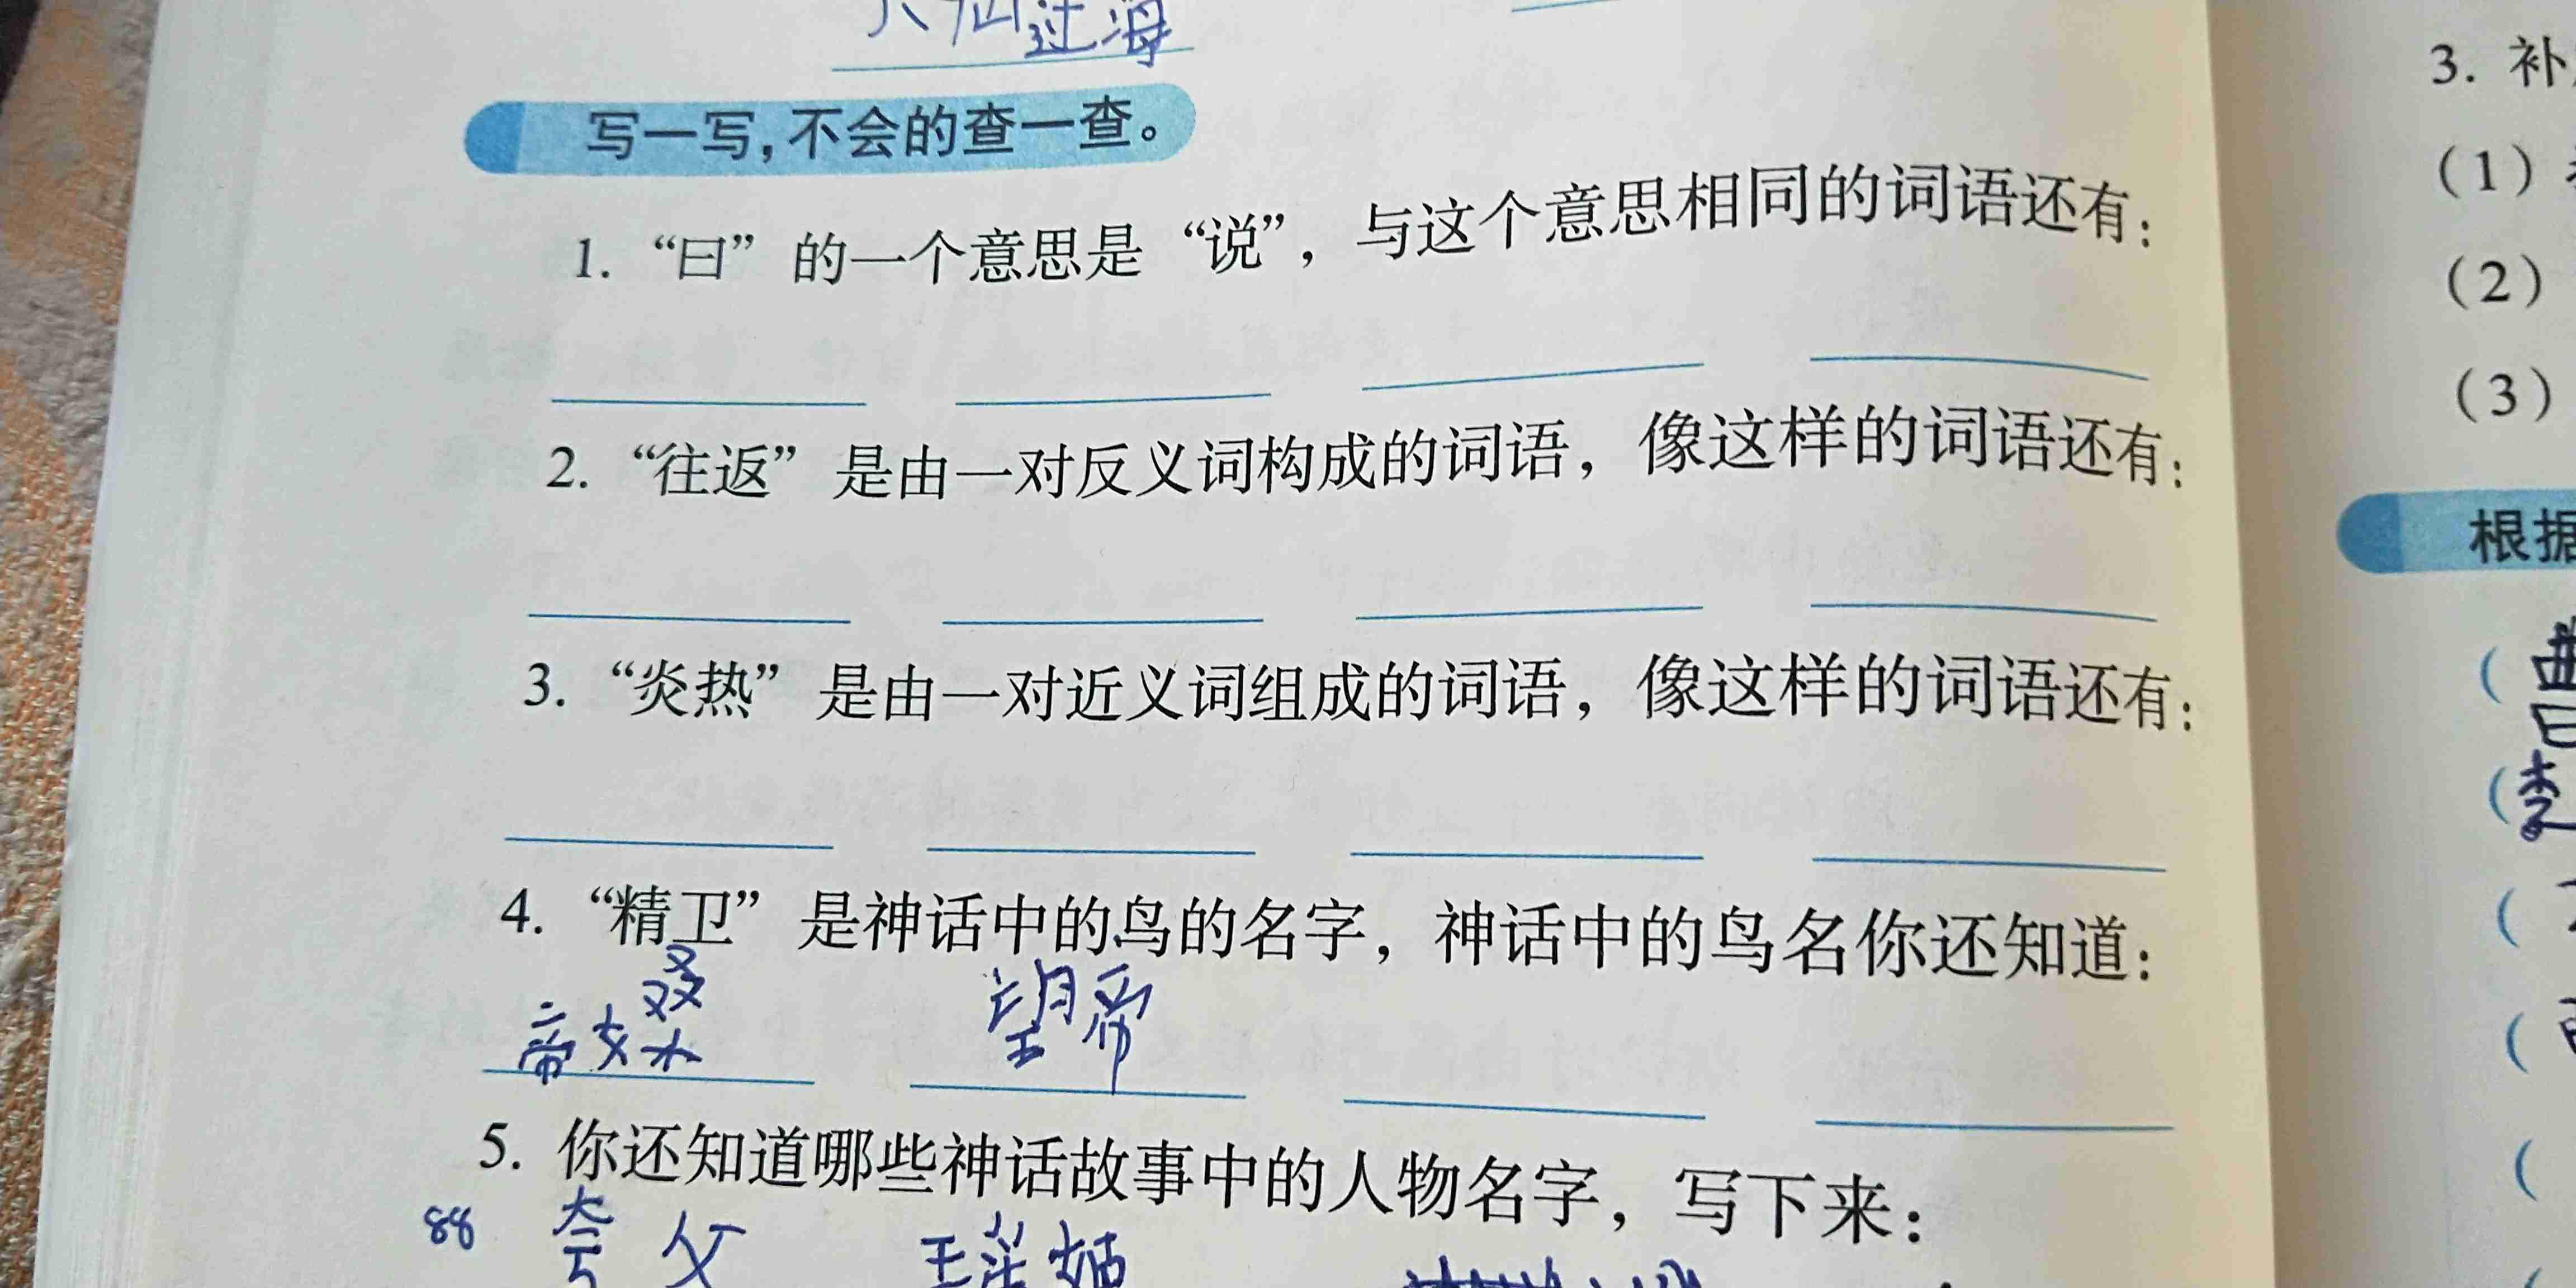 过海
写一写,不会的查一查。
1. “曰”的一个意思是“说”，与这个意思相同的词语还有：
2. “往返”是由一对反义词构成的词语，像这样的词语还有：
3. “炎热”是由一对近义词组成的词语，像这样的词语还有：
4. “精卫”是神话中的鸟的名字，神话中的鸟名你还知道：
帝女桑 望帝
5. 你还知道哪些神话故事中的人物名字，写下来：
88 夸父
3. 补
(1)
(2)
(3)
根据